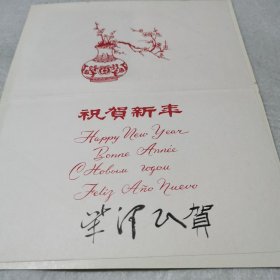 祝賀新年
Happy New Year
Bonne Année
С Новым годом
Feliz Año Nuevo
柴泽民賀